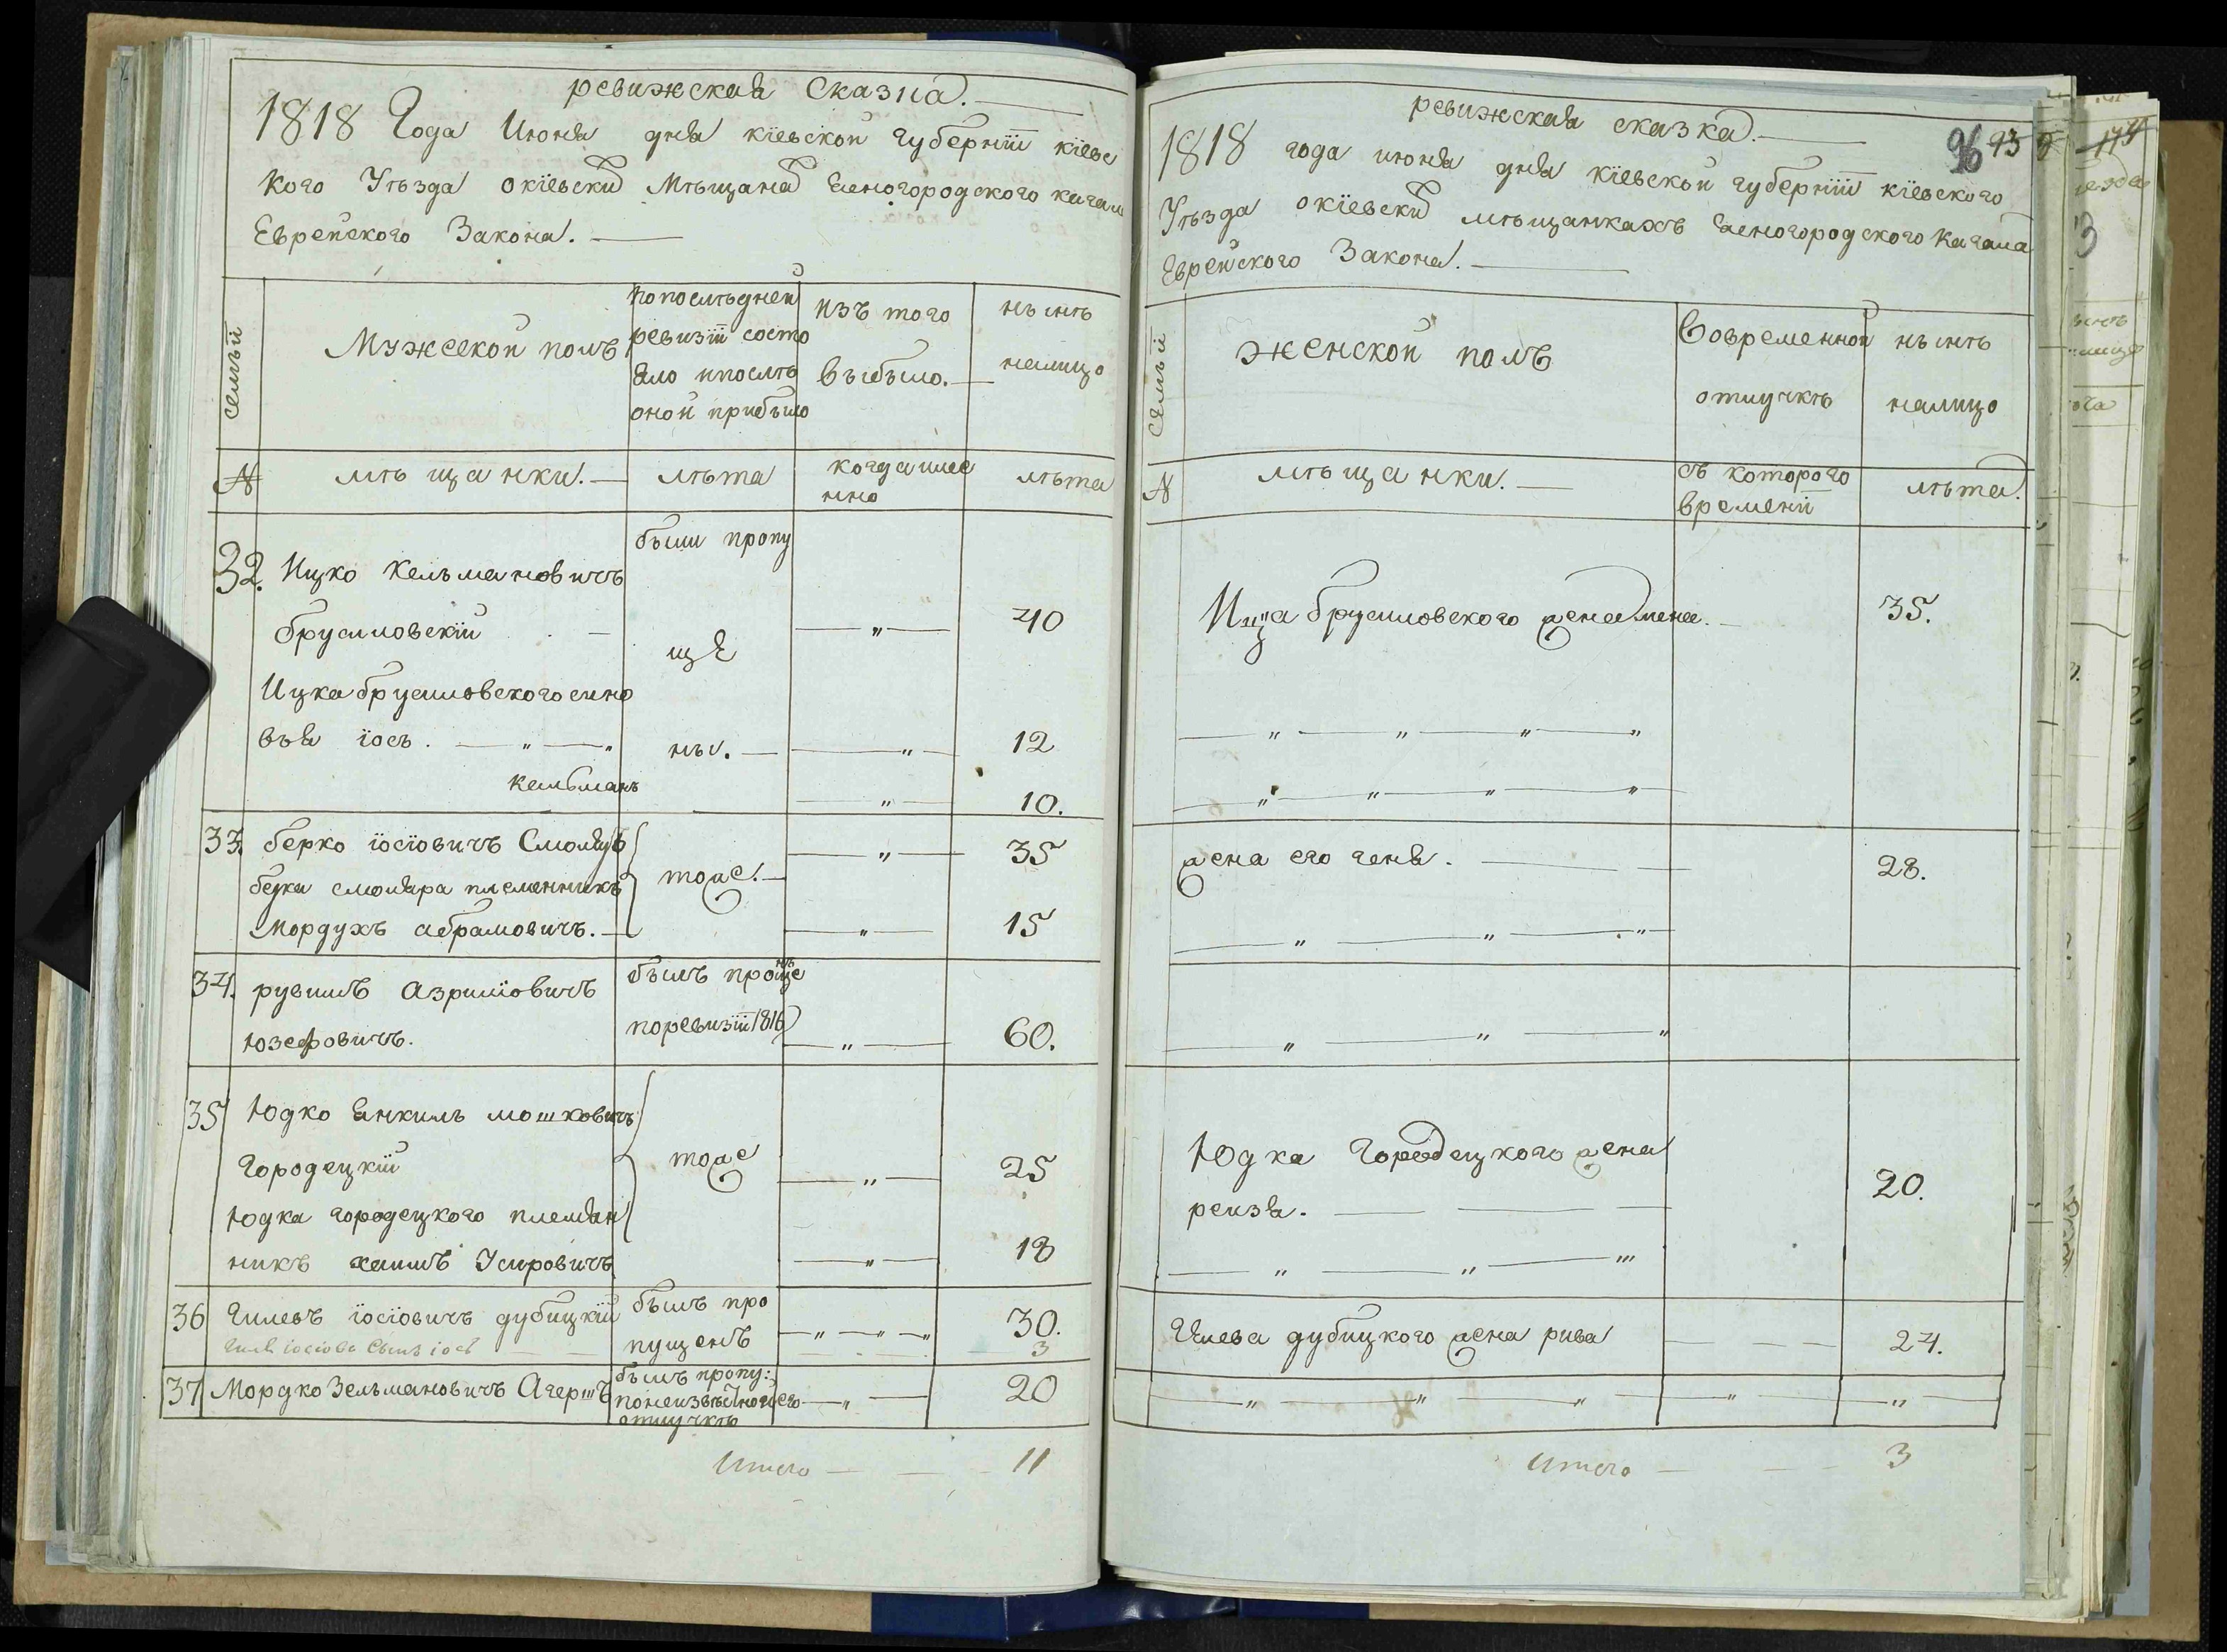 ревижская сказка.
1818 Года Июня дня кіевской губерніи кіевс
кого Уѣзда окіевски Мѣщана Ясногородского кагала
Еврейского Закона.
семьи
Мужеской полъ
попослѣдней
ревизіи состо
яло ипослѣ
оной прибыло
изъ того
выбыло.
нынѣ
налицо
№
мѣщанки.
лѣта
когда имее
нно
лѣта
32. Ицко Кельмановичъ
были пропу
брусиловскій
40
ще
Ицка брусиловского сино
вья іось.
ны.
12
Кельманъ
10.
33. берко іосіовичъ Смоляръ
35
берка смоляра племенникъ
тоже.
Мордухъ абрамовичъ.
15
34. рувинъ Азриліовичъ
былъ проще
нъ
юзефовичъ.
поревизіи 1816
60.
35 Юдко Янкиль мошковичъ
городецкій
тоже
25
Юдка городецкого племян
никъ хаимъ Усировичъ
18
36 Гилевъ іосіовичъ дубицкій
былъ про
30.
сынъ іось
пущенъ
3
37 Мордко Зельмановичъ Агершъ
былъ пропу:
понеизвѣстной его
отлучкѣ
20
Итого
11
ревижская сказка.
96 93
1818 года июня дня кіевской губерніи кіевского
Уѣзда окіевски мѣщанкахъ Ясногородского Кагала
Еврейского Закона.
семьи
женской полъ
Вовременной
отлучкѣ
нынѣ
налицо
№
мѣщанки.
съ которого
времени
лѣта.
Ицка брусиловского жена
35.
жена его геня.
28.
Юдка Городецкого жена
рейзя.
20.
Гилева дубицкого жена рива
24.
Итого
3
174
3